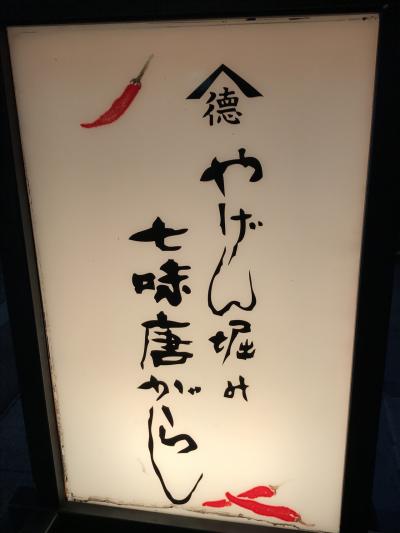 徳
やげん堀
七味唐がらし